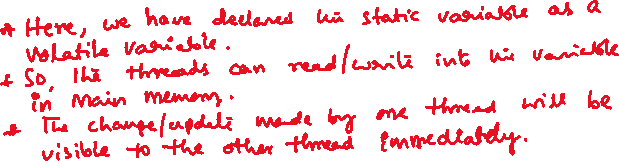 * Here, we have declared the static variable as a
volatile variable.
* So, the threads can read/write into the variable
in main memory.
* The change/update made by one thread will be
visible to the other thread immediately.